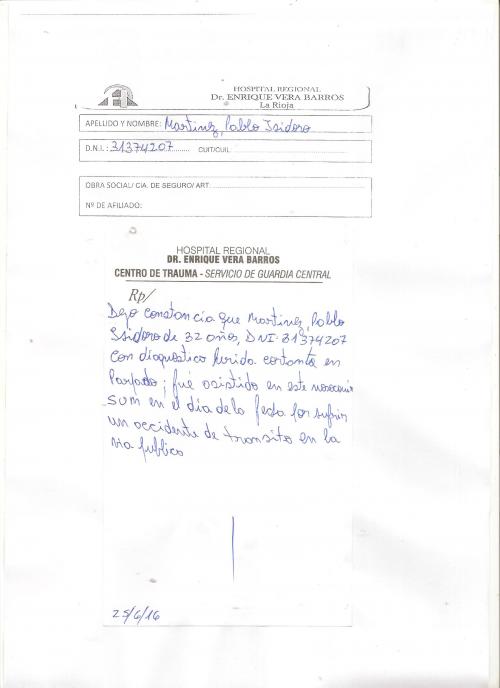 HOSPITAL REGIONAL
Dr. ENRIQUE VERA BARROS
La Rioja
APELLIDO Y NOMBRE: Martinez, Pablo Isidoro
D.N.I. : 31374207 CUIT/CUIL:
OBRA SOCIAL/ CIA. DE SEGURO/ ART:
Nº DE AFILIADO:
HOSPITAL REGIONAL
DR. ENRIQUE VERA BARROS
CENTRO DE TRAUMA - SERVICIO DE GUARDIA CENTRAL
Rp/
Dejo constancia que Martinez, Pablo
Isidoro de 32 años, DNI. 31374207
con diagnostico herida cortante en
Parpado; fué asistido en este
en el día de la fecha por sufrir
un accidente de transito en la
via publica
25/6/16